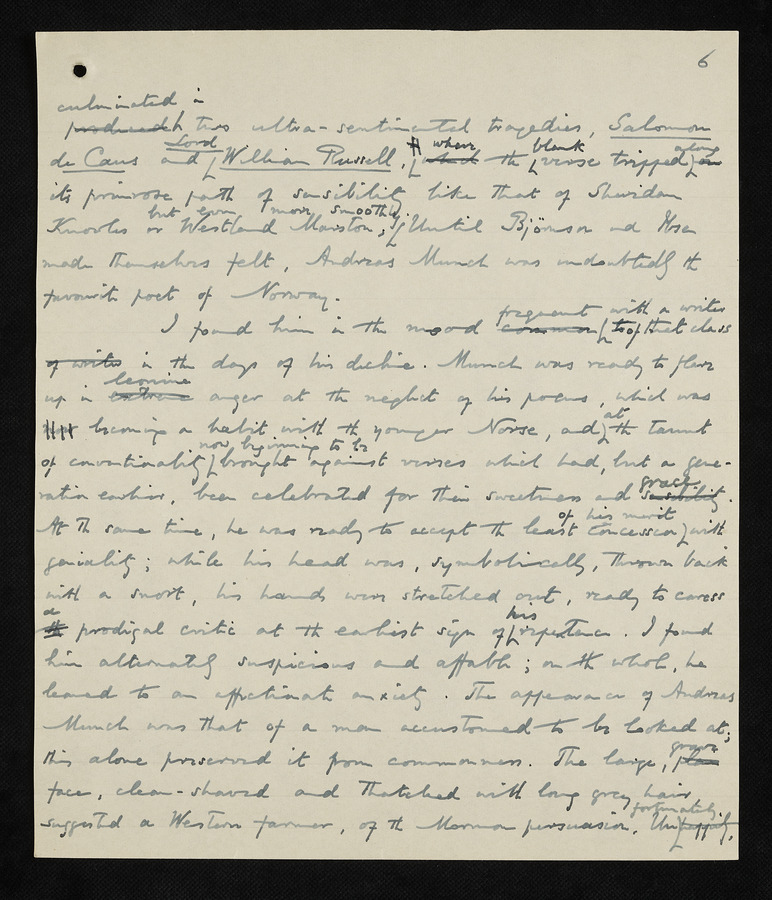 6
culminated in
produced two ultra-sentimental tragedies, Salomon
de Caus and Lord William Russell, where which the blank verse tripped along on
its primrose path of sensibility like that of Sheridan
Knowles or Westland Marston, but even more smoothly. Until Björnson and Ibsen
made themselves felt, Andreas Munch was undoubtedly the
favourite poet of Norway.
I found him in the mood frequent common with a writer to of that class
of writer in the days of his decline. Munch was ready to flare
up in leonine extreme anger at the neglect of his poems, which was
becoming a habit with the younger Norse, and at the taunt
of conventionality now beginning to be brought against verses which had, but a gene-
ration earlier, been celebrated for their sweetness and grace sensibility.
At the same time, he was ready to accept the least concession of his merit with
geniality; while his head was, symbolically, thrown back
with a snort, his hands were stretched out, ready to caress
a the prodigal critic at the earliest sign of his repentance. I found
him alternately suspicious and affable; on the whole, he
leaned to an affectionate anxiety. The appearance of Andreas
Munch was that of a man accustomed to be looked at;
this alone preserved it from commonness. The large, grave
face, clean-shaved and thatched with long grey hair,
suggested a Western farmer, of the Mormon persuasion. Unfortunately happily,